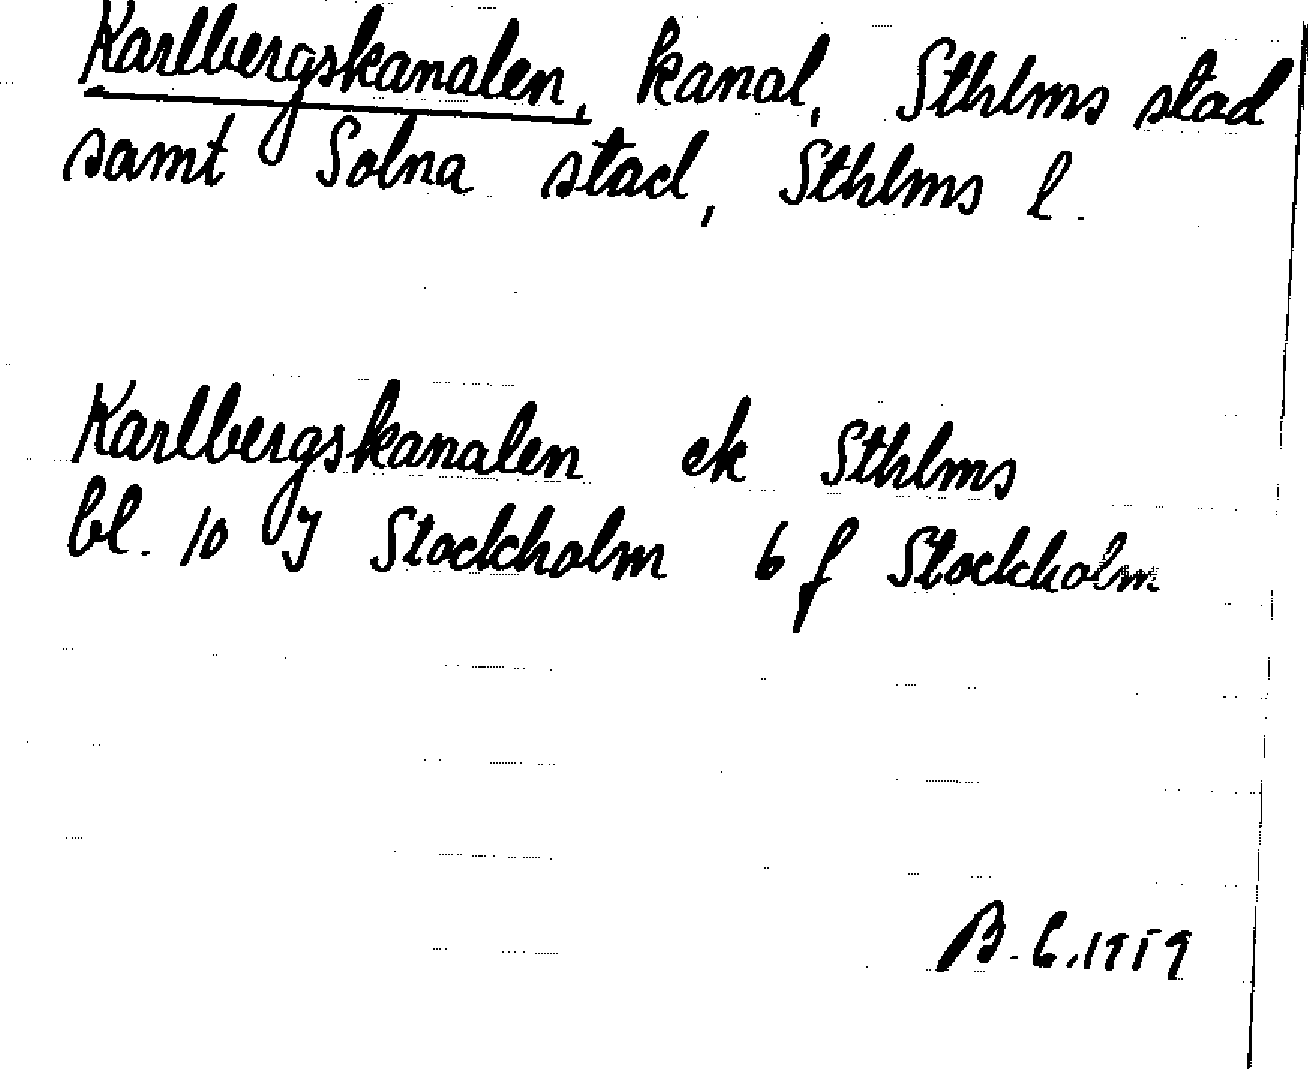 Karlbergskanalen, kanal, Sthlms stad
samt Solna stad, Sthlms l.
Karlbergskanalen ek Sthlms
bl. 10 J Stockholm 6 f Stockholm
B.C. 1959